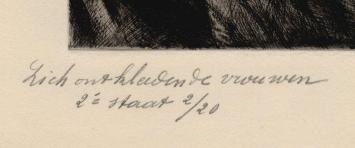 Zich ontkleedende vrouwen
2e staat 2/20